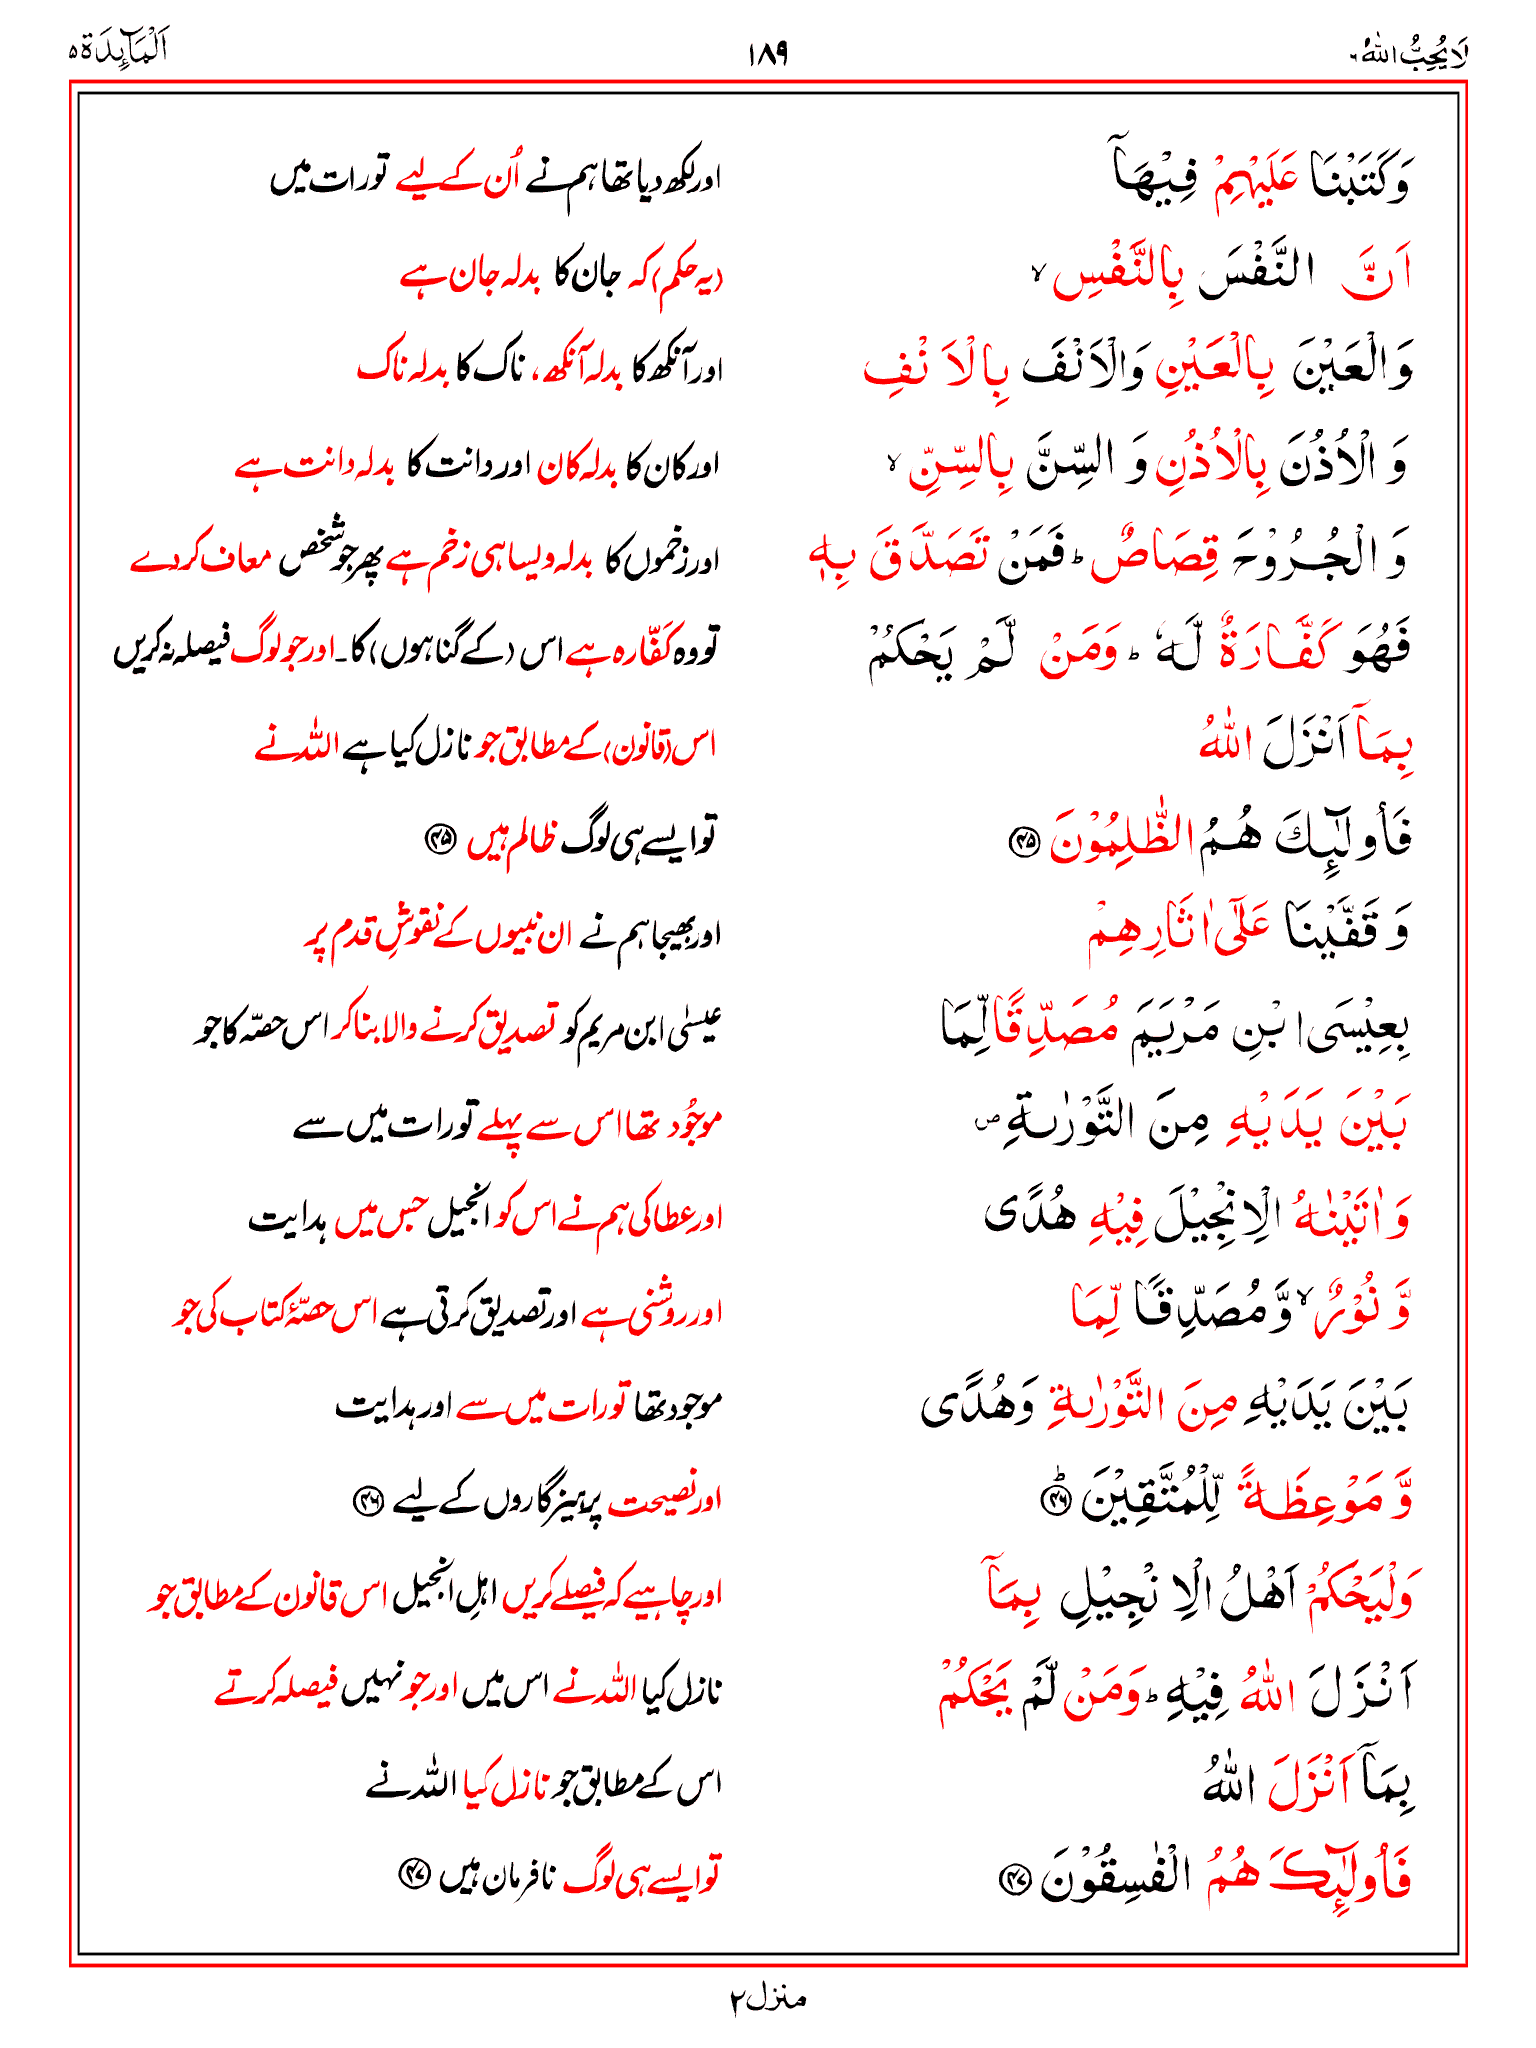 لَا يُحِبُّ اللّٰهُ ٦ ١٨٩ اَلْمَآئِدَة ٥
وَكَتَبْنَا عَلَيْهِمْ فِيْهَآ اور لکھ دیا تھا ہم نے اُن کے لیے تورات میں
اَنَّ النَّفْسَ بِالنَّفْسِ ۙ (یہ حکم) کہ جان کا بدلہ جان ہے
وَالْعَيْنَ بِالْعَيْنِ وَالْاَنْفَ بِالْاَنْفِ اور آنکھ کا بدلہ آنکھ، ناک کا بدلہ ناک
وَالْاُذُنَ بِالْاُذُنِ وَالسِّنَّ بِالسِّنِّ ۙ اور کان کا بدلہ کان اور دانت کا بدلہ دانت ہے
وَالْجُرُوْحَ قِصَاصٌ ؕ فَمَنْ تَصَدَّقَ بِهٖ اور زخموں کا بدلہ ویسا ہی زخم ہے پھر جو شخص معاف کر دے
فَهُوَ كَفَّارَةٌ لَّهٗ ؕ وَمَنْ لَّمْ يَحْكُمْ تو وہ کَفّارہ ہے اس (کے گناہوں) کا۔ اور جو لوگ فیصلہ نہ کریں
بِمَآ اَنْزَلَ اللّٰهُ اس (قانون) کے مطابق جو نازل کیا ہے اللہ نے
فَاُولٰٓئِكَ هُمُ الظّٰلِمُوْنَ ۴۵ تو ایسے ہی لوگ ظالم ہیں ۴۵
وَقَفَّيْنَا عَلٰٓى اٰثَارِهِمْ اور بھیجا ہم نے ان نبیوں کے نقوشِ قدم پر
بِعِيْسَى ابْنِ مَرْيَمَ مُصَدِّقًا لِّمَا عیسٰی ابن مریم کو تصدیق کرنے والا بنا کر اس حصّہ کا جو
بَيْنَ يَدَيْهِ مِنَ التَّوْرٰىةِ ۪ موجُود تھا اس سے پہلے تورات میں سے
وَاٰتَيْنٰهُ الْاِنْجِيْلَ فِيْهِ هُدًى اور عطا کی ہم نے اس کو انجیل جس میں ہدایت
وَّنُوْرٌ ۙ وَّمُصَدِّقًا لِّمَا اور روشنی ہے اور تصدیق کرتی ہے اس حصّۂ کتاب کی جو
بَيْنَ يَدَيْهِ مِنَ التَّوْرٰىةِ وَهُدًى موجود تھا تورات میں سے اور ہدایت
وَّمَوْعِظَةً لِّلْمُتَّقِيْنَ ؕ ۴۶ اور نصیحت پرہیزگاروں کے لیے ۴۶
وَلْيَحْكُمْ اَهْلُ الْاِنْجِيْلِ بِمَآ اور چاہیے کہ فیصلے کریں اہلِ انجیل اس قانون کے مطابق جو
اَنْزَلَ اللّٰهُ فِيْهِ ؕ وَمَنْ لَّمْ يَحْكُمْ نازل کیا اللہ نے اس میں اور جو نہیں فیصلہ کرتے
بِمَآ اَنْزَلَ اللّٰهُ اس کے مطابق جو نازل کیا اللہ نے
فَاُولٰٓئِكَ هُمُ الْفٰسِقُوْنَ ۴۷ تو ایسے ہی لوگ نافرمان ہیں ۴۷
منزل ۲